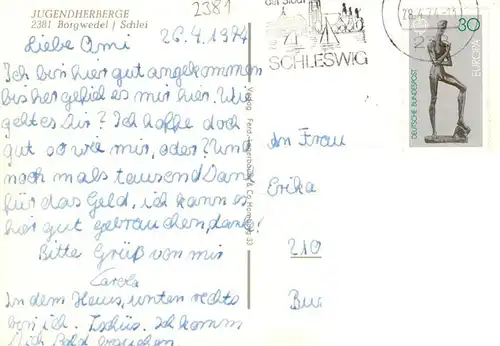 JUGENDHERBERGE
2381 Borgwedel / Schlei
2381
Liebe Omi 26.4.1974
Ich bin hier gut angekommen
bis her gefiel es mir hier. Wie
geht es Dir? Ich hoffe doch
gut so wie mir, oder? Und
noch mals tausend Dank
für das Geld, ich kann es
hier gut gebrauchen, danke!
Bitte Grüß von mir
Carola
In dem Haus, unten rechts
bin ich. Tschüs. Ich komm
Dich Bald besuchen.
Verlag Ferd. & Co Hamburg 33
der Stadt
SCHLESWIG
28.4.74
30
EUROPA
DEUTSCHE BUNDESPOST
An Frau
Erika
210